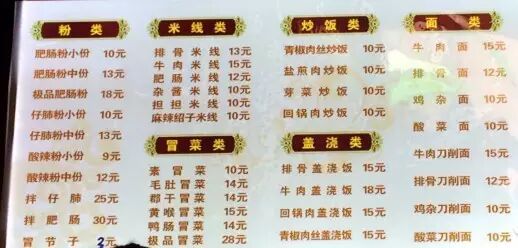 粉类
肥肠粉小份 10元
肥肠粉中份 13元
极品肥肠粉 18元
仔肺粉小份 10元
仔肺粉中份 13元
酸辣粉小份 9元
酸辣粉中份 12元
拌仔肺 25元
拌肥肠 30元
冒节子 2元
米线类
排骨米线 13元
牛肉米线 15元
肥肠米线 12元
杂酱米线 10元
担担米线 10元
麻辣绍子米线 10元
冒菜类
素冒菜 10元
毛肚冒菜 14元
郡干冒菜 14元
黄喉冒菜 15元
鸭肠冒菜 14元
极品冒菜 28元
炒饭类
青椒肉丝炒饭 10元
盐煎肉炒饭 10元
芽菜炒饭 10元
回锅肉炒饭 10元
盖浇类
排骨盖浇饭 15元
牛肉盖浇饭 18元
回锅肉盖浇饭 15元
青椒肉丝盖浇饭 15元
面类
牛肉面 15元
排骨面 12元
鸡杂面 10元
酸菜面 10元
牛肉刀削面 15元
排骨刀削面 12元
鸡杂刀削面 10元
酸菜刀削面 10元